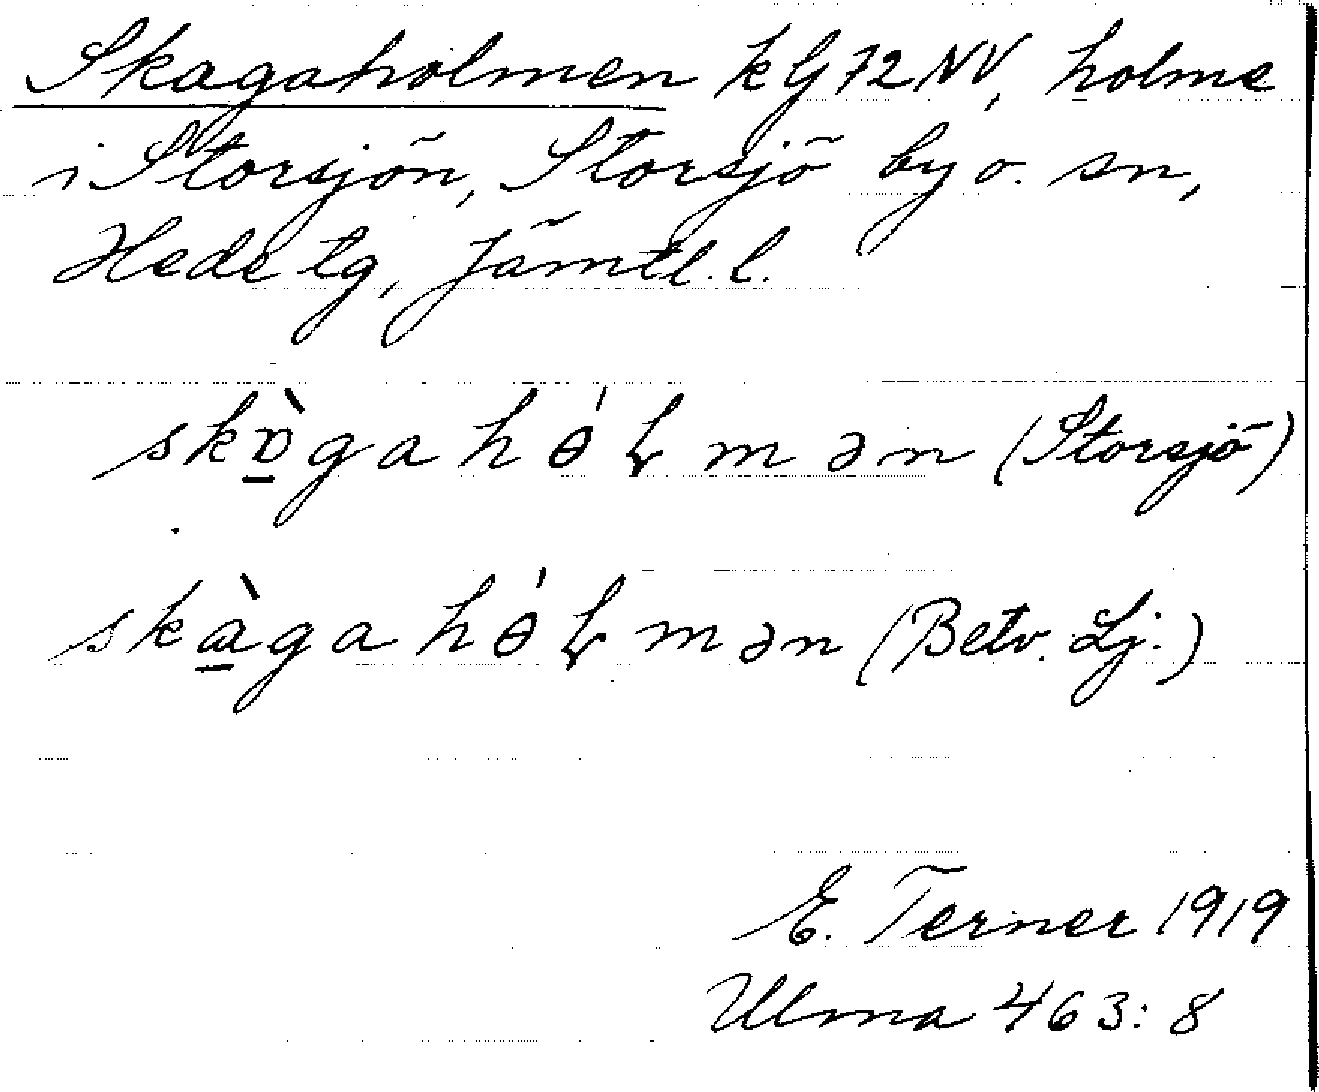 Skagaholmen kG 72 NV, holme
i Storsjön, Storsjö by o. sn,
Hede tg, Jämtl. l.
skɒ̠̀gahɵ́ɽmən (Storsjö)
skà̠gahɵ́ɽmən (Betv. Lj.)
E. Terner 1919
Ulma 463:8